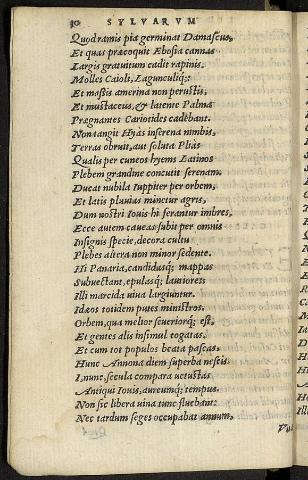 30 SYLVARVM
Quodramis pia germinat Damascus,
Et quas præcoquit Ebosia cannas
Largis gratuitum cadit rapinis.
Molles Caioli, Lagunculiq;:
Et massis amerina non perustis,
Et mustaceus, & latente Palma
Prægnantes Cariotides cadebant.
Non tangit Hyas inserena nimbis,
Terras obruit, aut soluta Plias
Qualis per cuneos hyems Latinos
Plebem grandine concutit serenam.
Ducat nubila Iuppiter per orbem,
Et latis pluuias minetur agris,
Dum nostri Iouis hi ferantur imbres,
Ecce autem caueas subit per omnis
Insignis specie, decora cultu
Plebes altera non minor sedente.
Hi Panaria, candidasq; mappas
Subuectant, epulasq; lautiores:
Illi marcida uina largiuntur.
Idæos totidem putes ministros.
Orbem, qua melior seueriorq; est,
Et gentes alis insimul togatas.
Et cum tot populos beata pascas,
Hunc Annona diem superba nescit.
I nunc, secula compara uetustas
Antiqui Iouis, aureumq; tempus.
Non sic libera uina tunc fluebant:
Nec tardum seges occupabat annum,